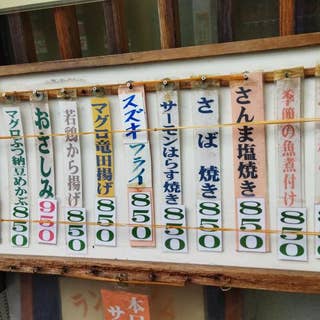 季節の魚煮付け 850
さんま塩焼き 850
さば焼き 850
サーモンはらす焼き 850
スズキフライ 850
マグロ竜田揚げ 850
若鶏から揚げ 850
おさしみ 950
マグロぶつ納豆めかぶ 850